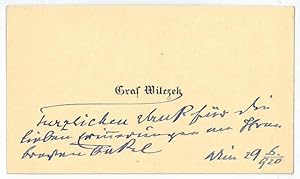 Graf Wilczek
Herzlichen Dank für die
lieben Erinnerungen an Ihren
braven Onkel
Wien 29 6/920